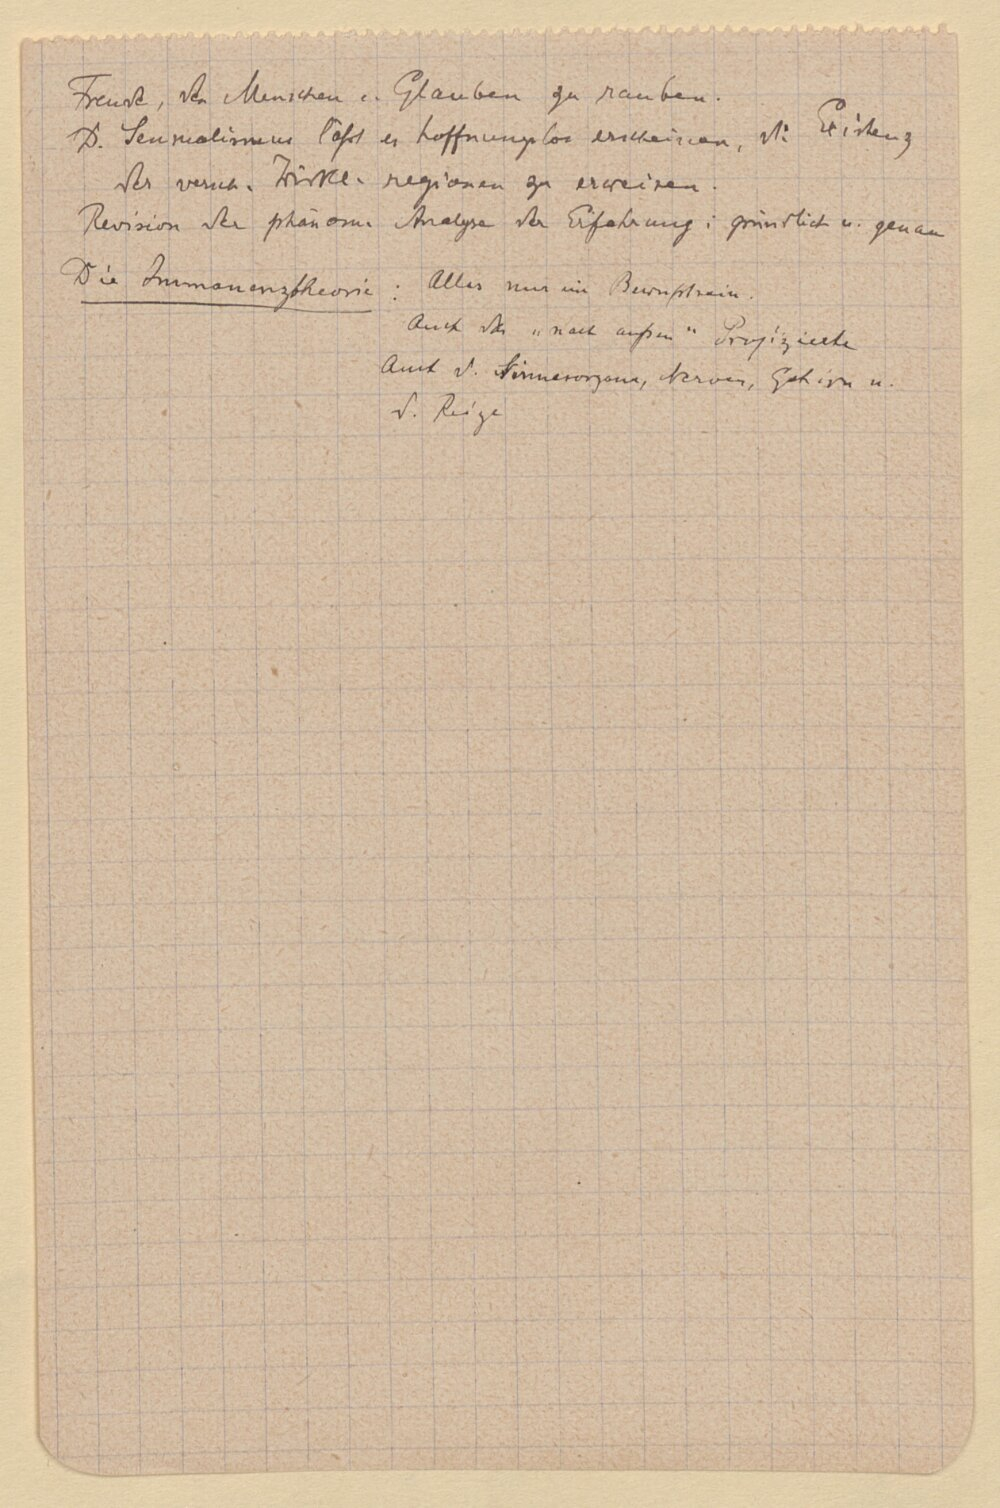 Freude, den Menschen d. Glauben zu rauben.
D. Sensualismus läßt es hoffnungslos erscheinen, die Existenz
der versch. Wirkl. regionen zu erweisen.
Revision der phänom. Analyse der Erfahrung: gründlich u. genau
Die Immanenztheorie: Alles nur im Bewußtsein.
Auch das „nach außen“ Projizierte
Auch d. Sinnesorgane, Nerven, Gehirn u.
d. Reize